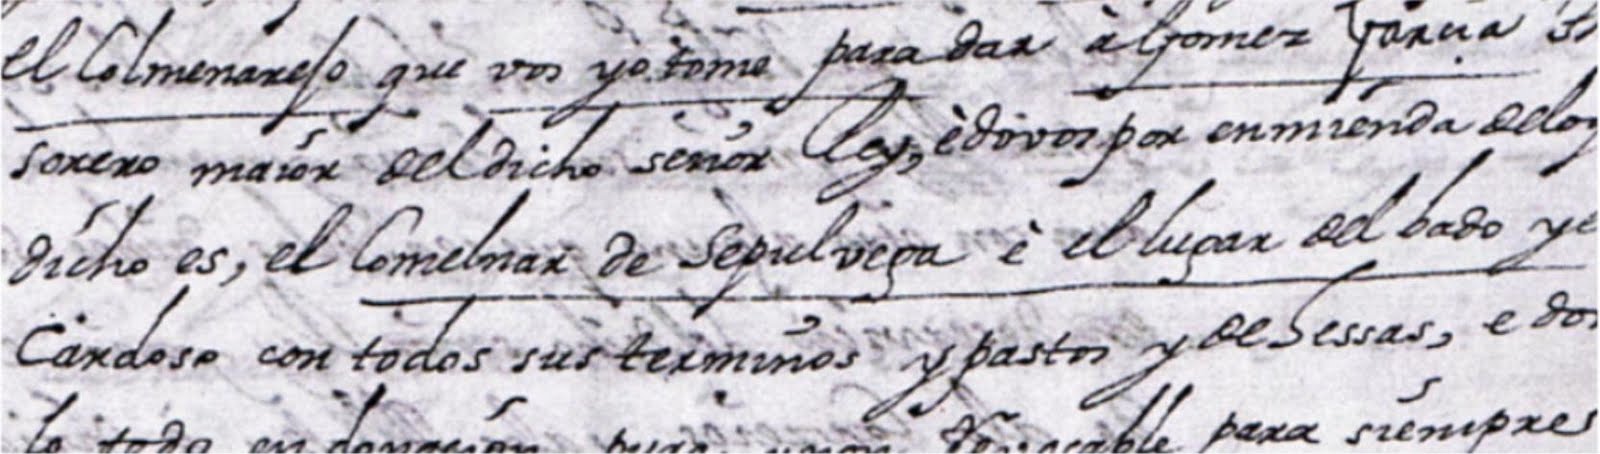 el Colmenarejo que vos yo tome para dar à Gomez Garcia th
sorero maior del dicho señor Rey, è dovos por enmienda delo q
dicho es, el Comelnar de Sepulvega è el lugar del bado y e
Cardoso con todos sus terminos y pastos y deessas, e dos
lo todo en donación pura para siempres